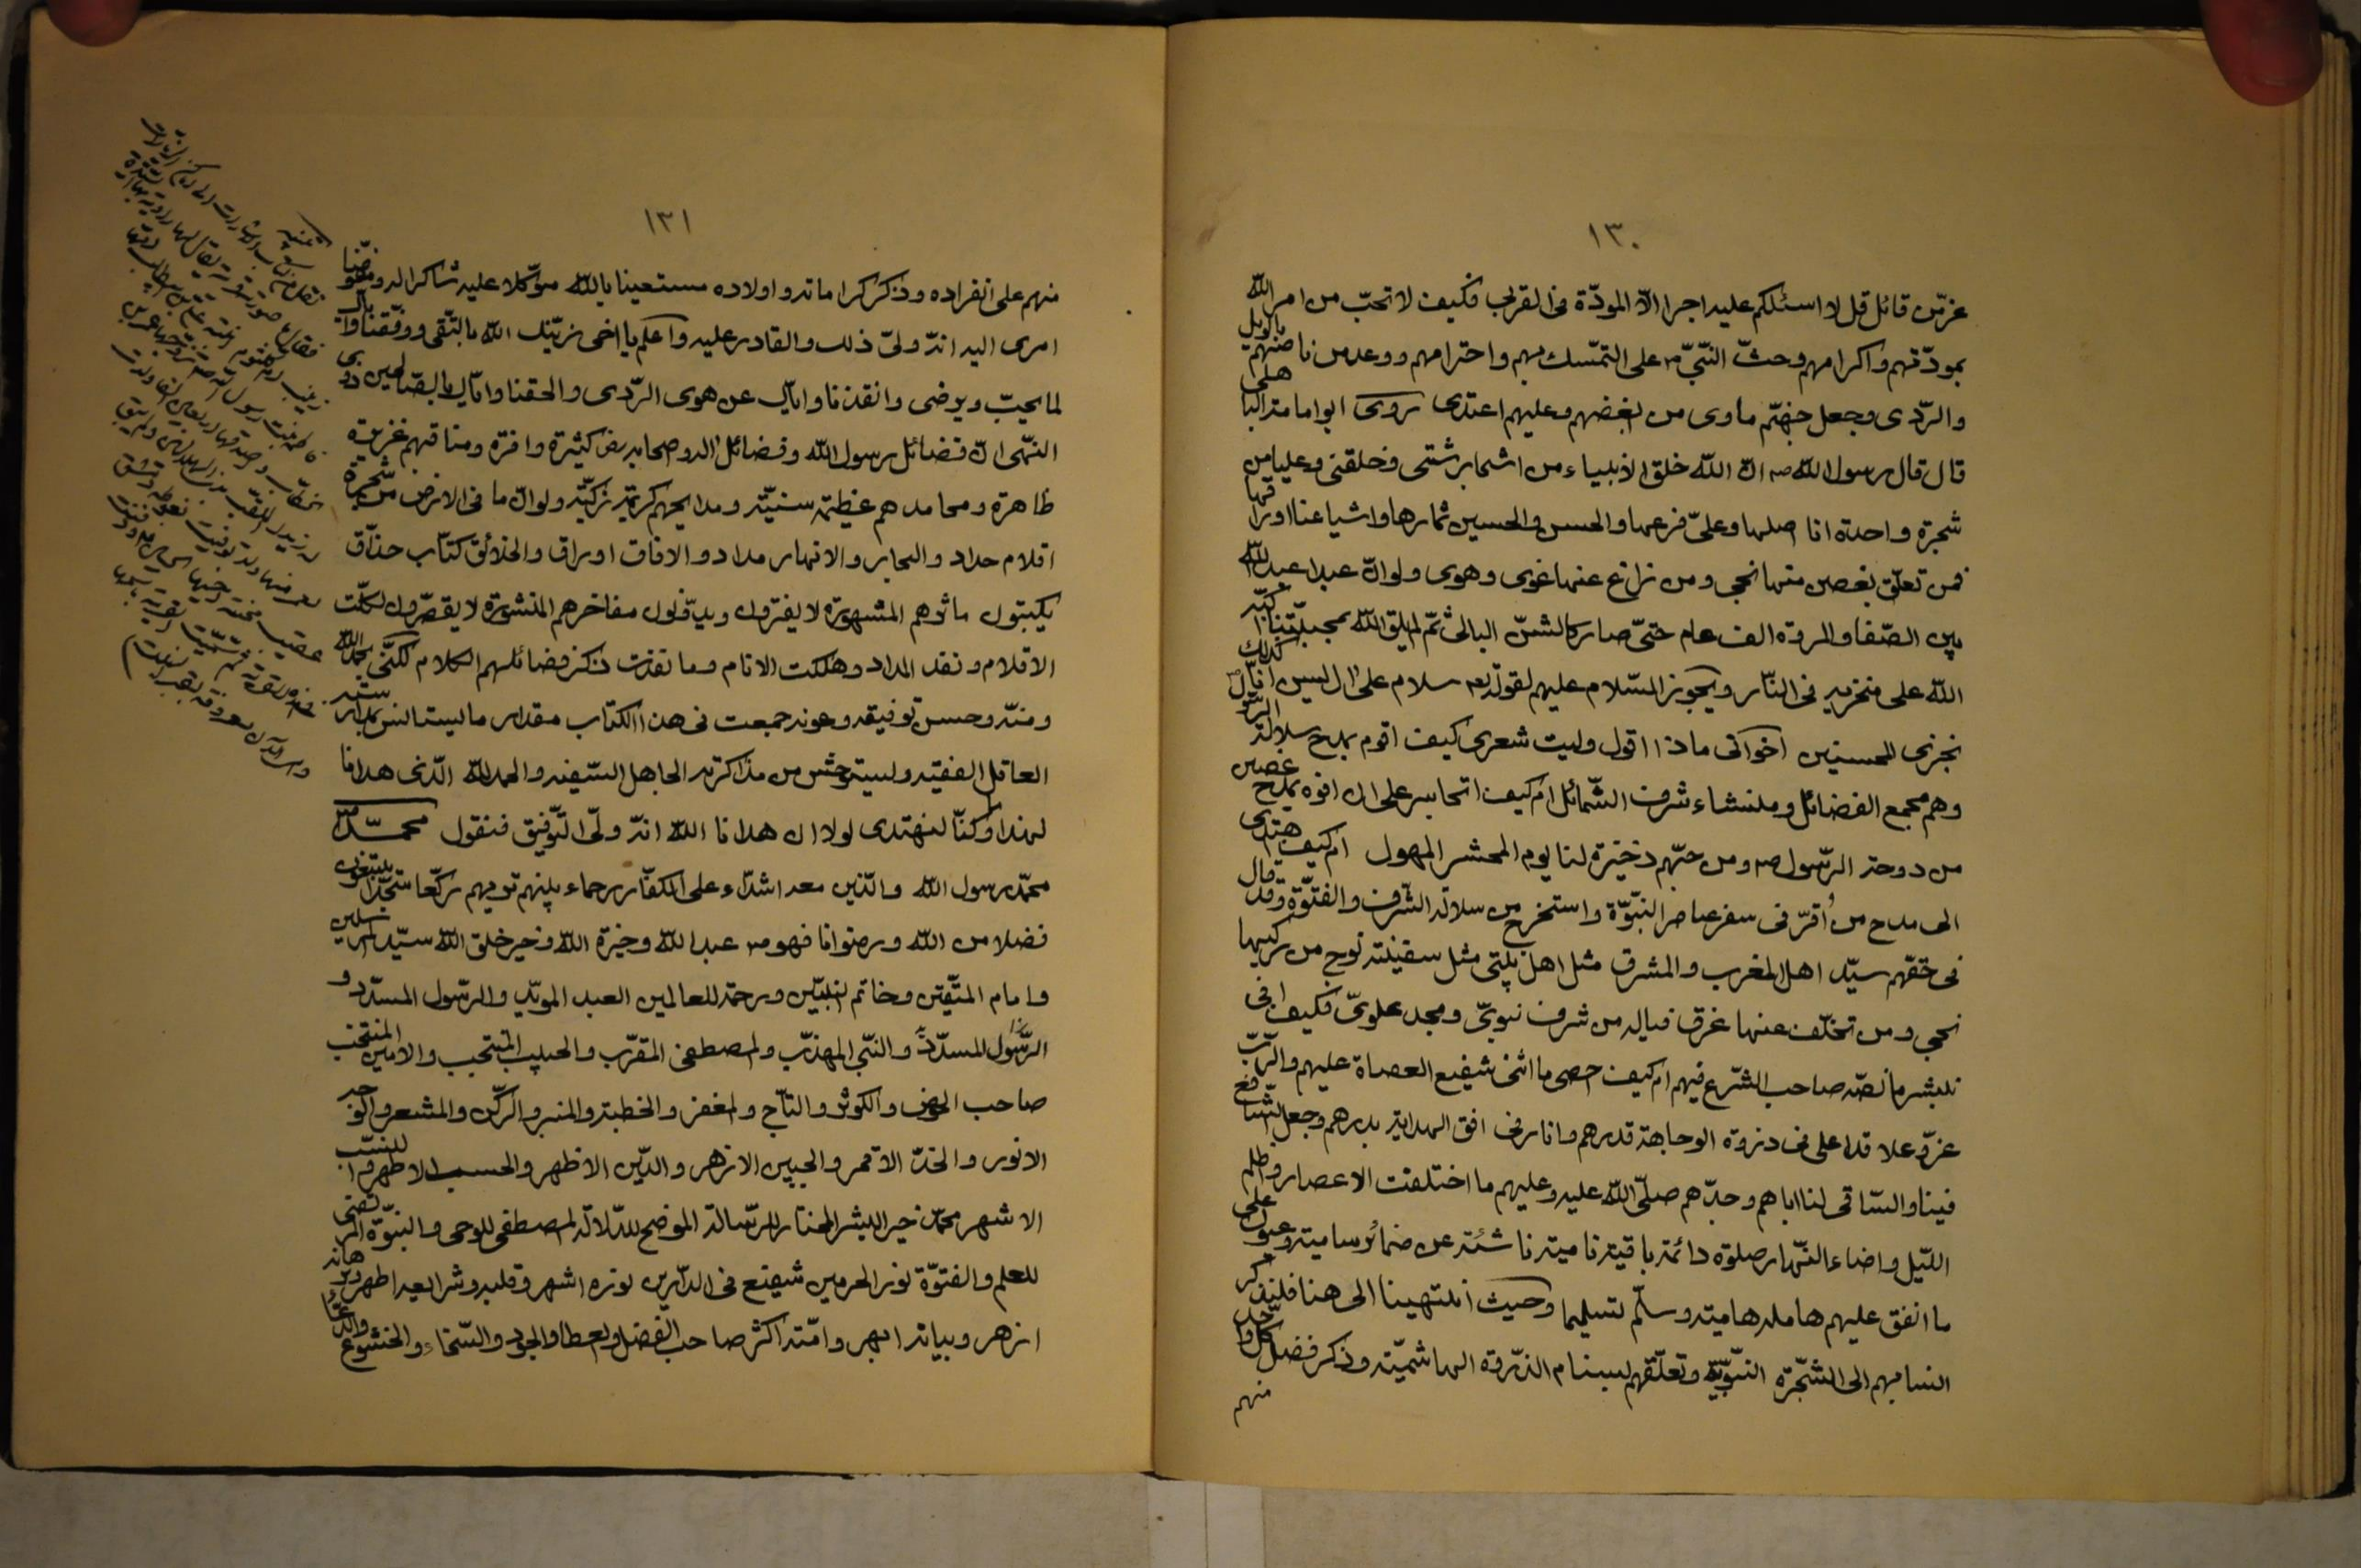 ١٣٠
عزّ من قائل قل لا اسئلكم عليه اجرا الّا المودّة فى القربى فكيف لا تحبّ من امر اللّه
بمودّتهم واكرامهم وحثّ النّبىّ ص على التمسّك بهم واحترامهم ووعد من ناصبهم بالويل
والرّدى وجعل جهنّم ماوى من ابغضهم وعليهم اعتدى روى ابو امامة الباهلى
قال قال رسول اللّه ص انّ اللّه خلق الانبياء من اشجار شتى وخلقنى وعليا من
شجرة واحدة انا اصلها وعلىّ فرعها والحسن والحسين ثمارها واشياعنا اوراقها
فمن تعلّق بغصن منها نجى ومن زاغ عنها غوى وهوى ولو انّ عبدا عبد اللّه
بين الصّفا والمروة الف عام حتّى صار كالشنّ البالى ثمّ لم يلق اللّه بمحبّتنا اكبّه
اللّه على منخريه فى النّار ويجوز السّلام عليهم لقوله تعه سلام على ال ليسين انّا كذلك
نجزى المحسنين اخوانى ماذا اقول وليت شعرى كيف اقوم بمدح سلالة الرّسول
وهم مجمع الفضائل ومنشاء شرف الشّمائل ام كيف اتجاسر على ان افوه بمدح غصن
من دوحة الرّسول ص ومن حبّهم ذخيرة لنا يوم المحشر المهول ام كيف اهتدى
الى مدح من أقرّ فى سفر عناصر النبّوّة واستخرج من سلالة الشّرف والفتوّة وقد قال
فى حقّهم سيّد اهل المغرب والمشرق مثل اهل بيتى مثل سفينة نوح من ركبها
نجى ومن تخلّف عنها غرق فياله من شرف نبوىّ ومجد علوىّ فكيف انى
بنشر ما نصّه صاحب الشّرع فيهم ام كيف احصى ما اثنى شفيع العصاة عليهم والرّبّ
عزّ وعلا قد اعلى فى ذروة الوجاهة قدرهم وانار فى افق الهداية بدرهم وجعل الشّافع
فينا والسّاقى لنا اباهم وجدّهم صلّى اللّه عليه وعليهم ما اختلفت الاعصار واظلم
اللّيل واضاء النّهار صلوة دائمة باقية نامية ناشئة عن ضمائر سامية وعيون على
ما اتفق عليهم هاملة هامية وسلّم تسليما وحيث انتهينا الى هنا فلنذكر
انسابهم الى الشّجرة النّبويّة وتعلّقهم بسنام الذّروة الهاشميّة وذكر فضل كلّ واحد
منهم
١٣١
منهم على انفراده وذكر كراماته واولاده مستعينا باللّه متوكّلا عليه شاكرا له ومفوّضا
امرى اليه انّه ولىّ ذلك والقادر عليه واعلم يا اخى زيّنك اللّه بالتّقى ووفّقنا وايّاك
لما يحبّ ويرضى وانقذنا وايّاك عن هوى الرّدى والحقنا وايّاك بالصّالحين ذوى
النّهى انّ فضائل رسول اللّه وفضائل اله وصحابه رض كثيرة وافرة ومناقبهم غزيرة
ظاهرة ومحامدهم عظيمة سنيّة ومدايحهم كريمة زكيّة ولو انّ ما فى الارض من شجرة
اقلام حداد والبحار والانهار مداد والافاق اوراق والخلائق كتّاب حذّاق
يكتبون ماثرهم المشهورة لا يفترون ويدّونون مفاخرهم المنشورة لا يقصّرون لكلّت
الاقلام ونفد المداد وهلكت الانام وما نفذت ذكر فضائلهم الكلام لكنّى بحمد اللّه
ومنّه وحسن توفيقه وعونه جمعت فى هذا الكتاب مقدار ما يستانس بمدارسته
العاقل الفقيه ويستوحش من مذاكرته الجاهل السّفيه والحمد للّه الّذى هدانا
لهذا وما كنّا لنهتدى لولا ان هدانا اللّه انّه ولىّ التّوفيق فنقول محمّد ص
محمّد رسول اللّه والّذين معه اشدّاء على الكفّار رحماء بينهم تريهم ركّعا سجّدا يبتغون
فضلا من اللّه ورضوانا فهو ص عبد اللّه وخيرة اللّه وخير خلق اللّه سيّد المرسلين
وامام المتّقين وخاتم النبيّين ورحمة للعالمين العبد المويّد والرّسول المسدّد و
الرّسول المسدّد والنّبى المهذّب والمصطفى المقرّب والحبيب المنتجب والامين المنتخب
صاحب الحوض والكوثر والتّاج والمغفر والخطبة والمنبر والرّكن والمشعر والوجه
الانور والخدّ الاقمر والجبين الازهر والدّين الاظهر والحسب الاطهر والنسب
الاشهر محمّد خير البشر المختار للرّسالة الموضح للدّلالة المصطفى للوحى والنبّوّة المرتضى
للعلم والفتوّة نور الحرمين شفيع فى الدّارين نوره اشهر وقلبه وشرايعه اطهر وبرهانه
ازهر وبيانه ابهر وامّته اكثر صاحب الفضل والعطا والجود والسّخاء والخشوع والدّعاء